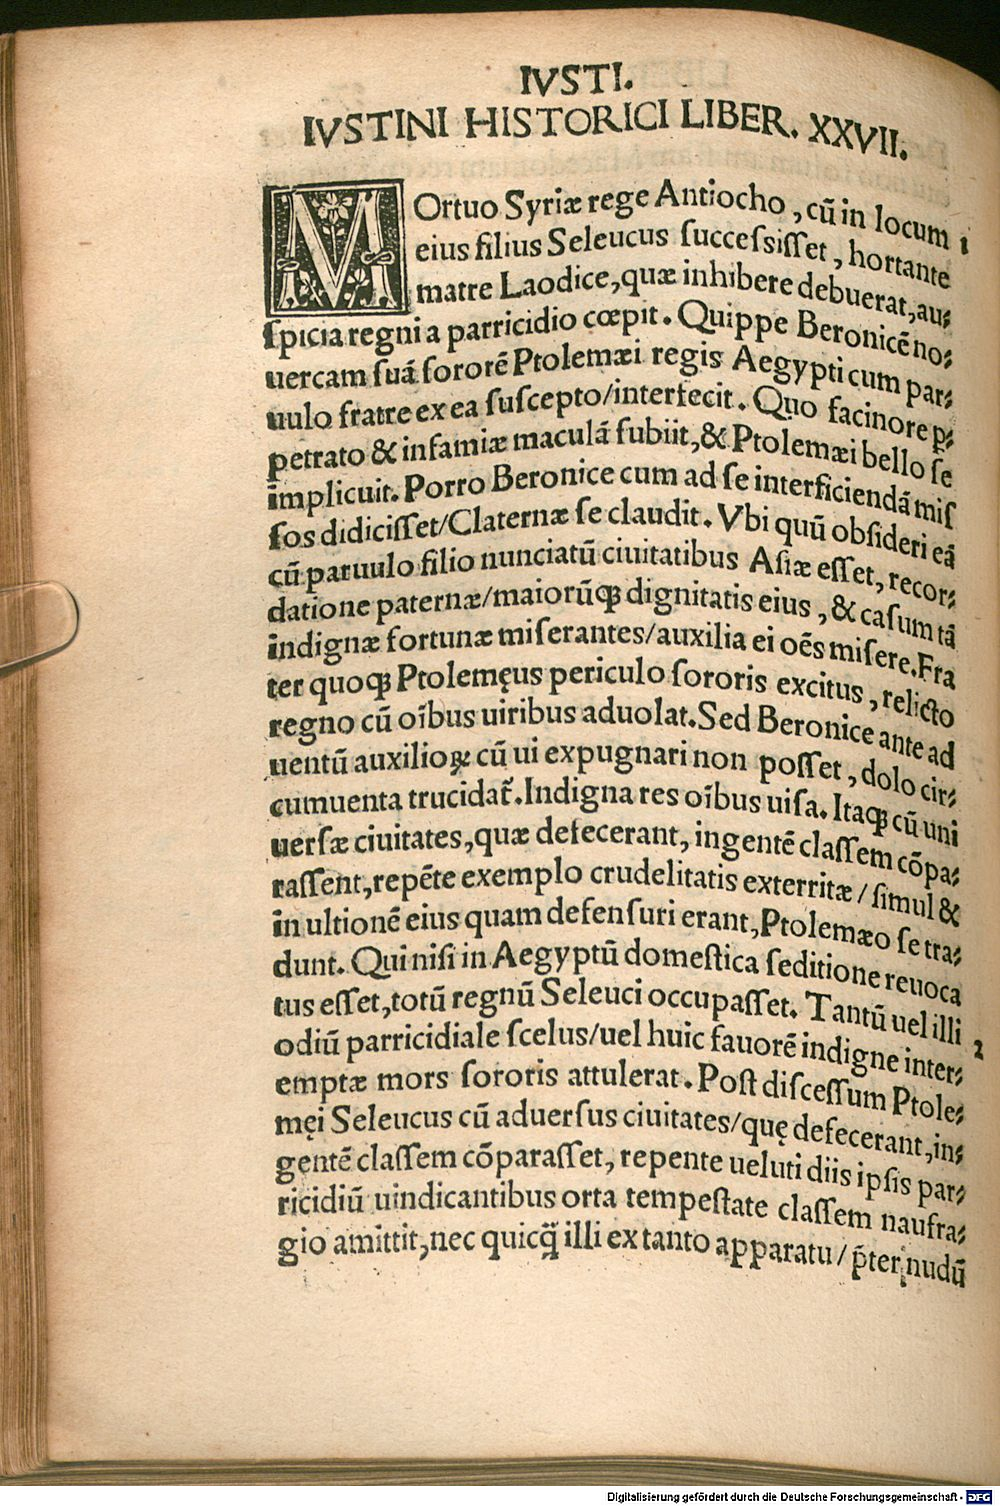 IVSTI.
IVSTINI HISTORICI LIBER. XXVII.
MOrtuo Syriæ rege Antiocho, cū in locum 1
eius filius Seleucus ſucceſsiſſet, hortante
matre Laodice, quæ inhibere debuerat, au⸗
ſpicia regni a parricidio cœpit. Quippe Beronicē no⸗
uercam ſuā ſororē Ptolemæi regis Aegypti cum par⸗
uulo fratre ex ea ſuſcepto/interfecit. Quo facinore ꝑ⸗
petrato & infamiæ maculā ſubiit, & Ptolemæi bello ſe
implicuit. Porro Beronice cum ad ſe interficiendā miſ
ſos didiciſſet/Claternæ ſe claudit. Vbi quū obſideri eā
cū paruulo filio nunciatū ciuitatibus Aſiæ eſſet, recor⸗
datione paternæ/maiorūqꝫ dignitatis eius, & caſum tā
indignæ fortunæ miſerantes/auxilia ei oēs miſere. Fra
ter quoqꝫ Ptolemęus periculo ſororis excitus, relicto
regno cū oībus uiribus aduolat. Sed Beronice ante ad
uentū auxilioꝝ cū ui expugnari non poſſet, dolo cir⸗
cumuenta trucidat̃. Indigna res oībus uiſa. Itaqꝫ cū uni
uerſæ ciuitates, quæ defecerant, ingentē claſſem cōpa⸗
raſſent, repēte exemplo crudelitatis exterritæ/ſimul &
in ultionē eius quam defenſuri erant, Ptolemæo ſe tra⸗
dunt. Qui niſi in Aegyptū domeſtica ſeditione reuoca
tus eſſet, totū regnū Seleuci occupaſſet. Tantū uel illi
odiū parricidiale ſcelus/uel huic fauorē indigne inter⸗ 2
emptæ mors ſororis attulerat. Poſt diſceſſum Ptole⸗
męi Seleucus cū aduerſus ciuitates/quę defecerant, in⸗
gentē claſſem cōparaſſet, repente ueluti diis ipſis par⸗
ricidiū uindicantibus orta tempeſtate claſſem naufra⸗
gio amittit, nec quicq̄ illi ex tanto apparatu/p̄ter nudū
Digitalisierung gefördert durch die Deutsche Forschungsgemeinschaft - DFG